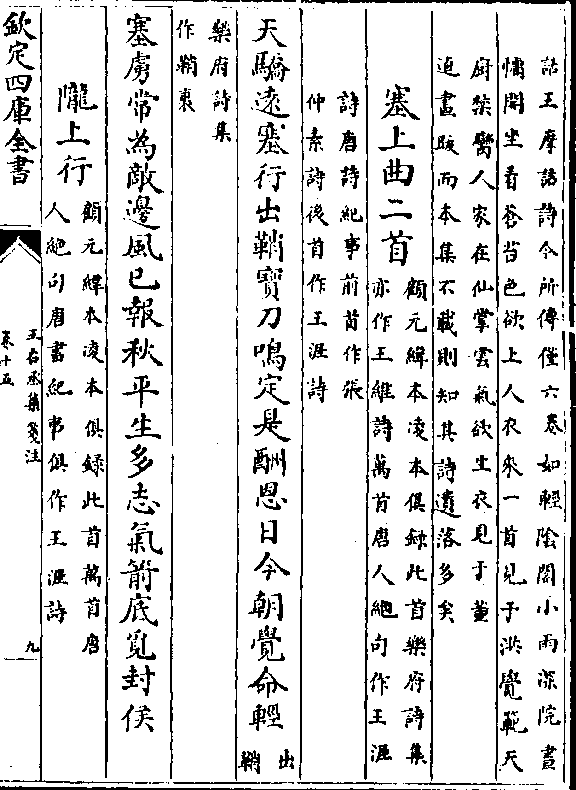 詰王摩詰詩今所傳僅六卷如輕陰閣小雨深院晝
慵開坐看蒼苔色欲上人衣來一首見于洪覺範天
厨禁臠人家在仙掌雲氣欲生衣見于董
逌畫跋而本集不載則知其詩遺落多矣
塞上曲二首
顧元緯本凌本俱録此首樂府詩集
亦作王維詩萬首唐人絶句作王涯
詩唐詩紀事前首作張
仲素詩後首作王涯詩
天驕遠塞行出鞘寳刀鳴定是酬恩日今朝覺命輕
出
鞘
樂府詩集
作鞘裏
塞虜常為敵邊風已報秋平生多志氣箭底覓封侯
隴上行
顧元緯本凌本俱録此首萬首唐
人絶句唐書紀事俱作王涯詩
欽定四庫全書
王右丞集箋注
卷十五
九